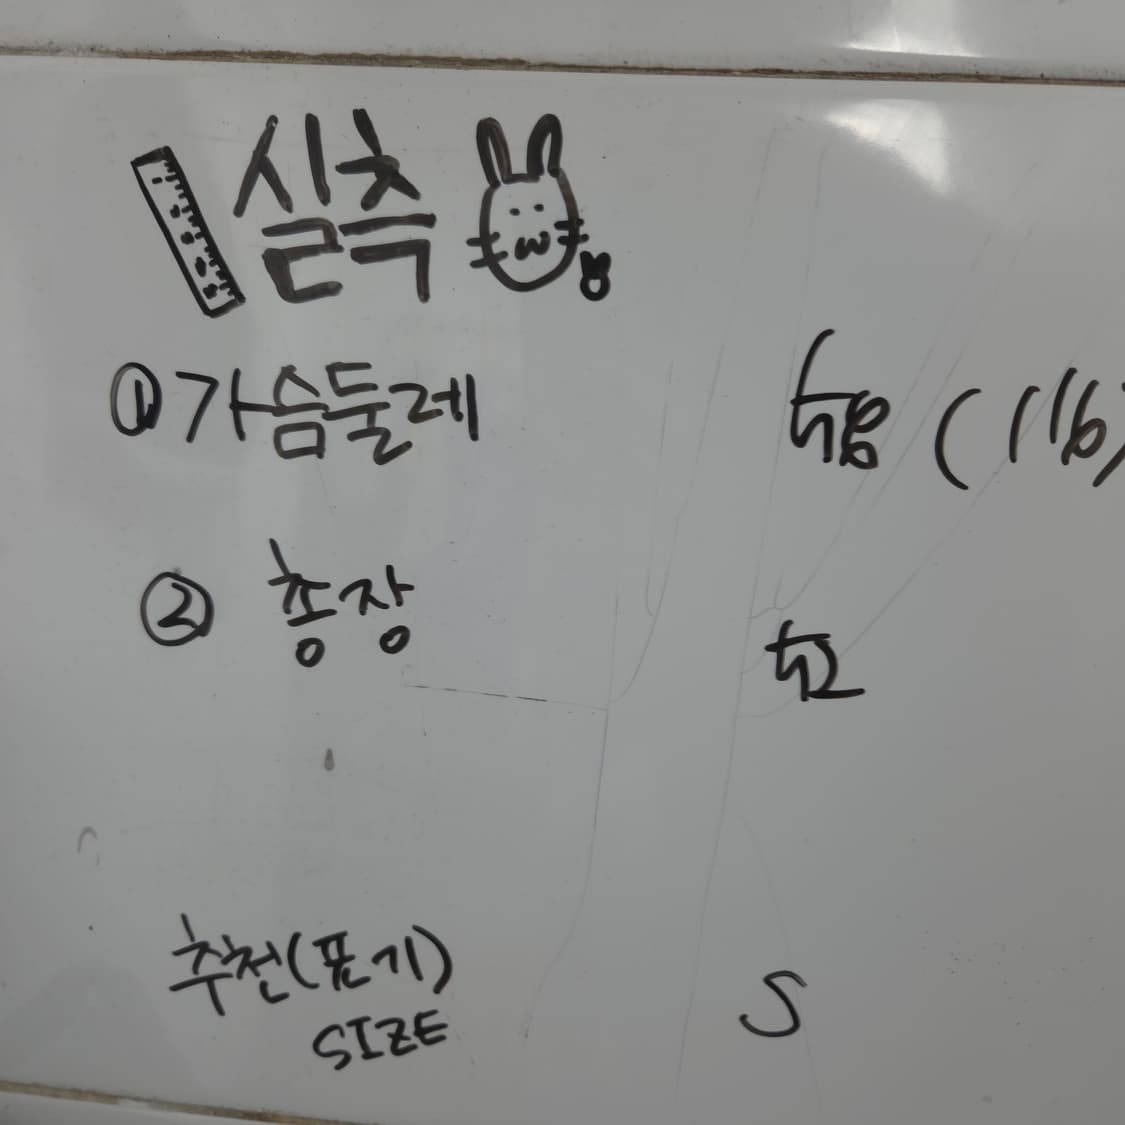 실측
① 가슴둘레 58 (116)
② 총장 52
추천(표기)
SIZE S